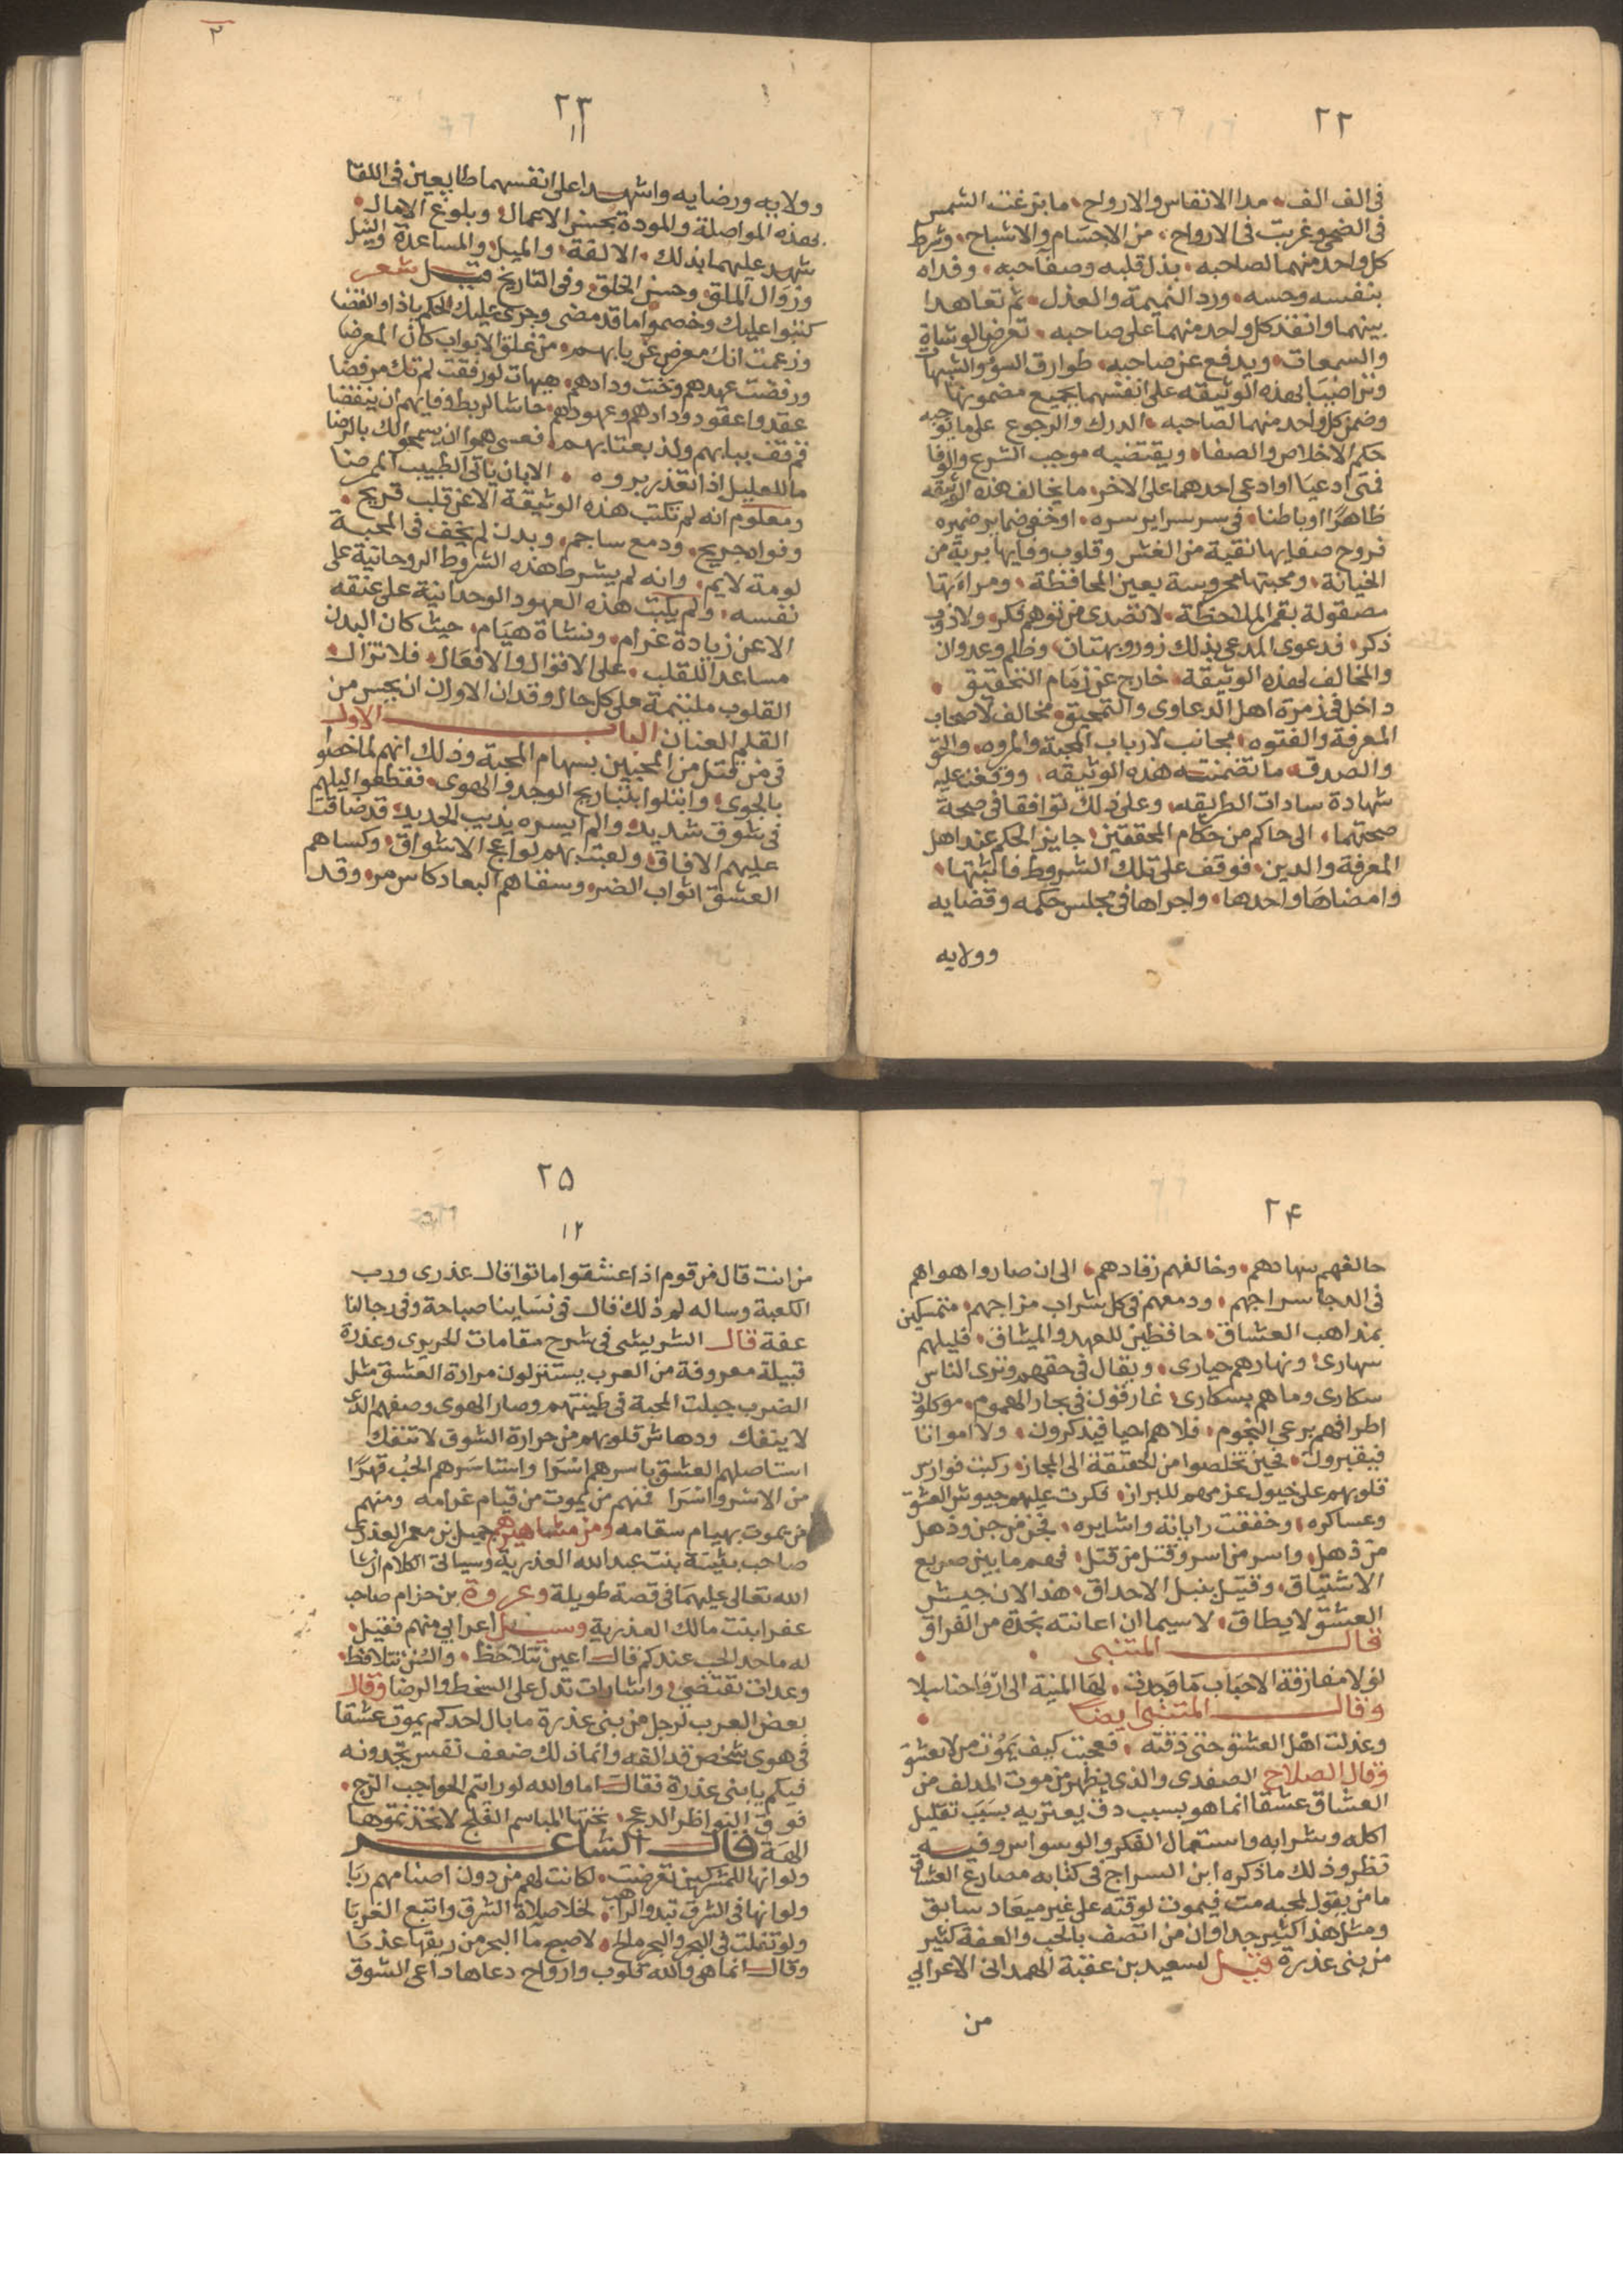 ٢٢
فى الف الف مدا الانفاس والارواح ما بزغت الشمس
فى الضحى وغربت فى الارواح من الاجسام والاشباح وشرط
كل واحد منهما لصاحبه بذل قلبه وصفا حبه وفداه
بنفسه وحسه ورد النميمة والعذل ثم تعاهدا
بينهما وانفذ كل واحد منهما على صاحبه تعرض الوشاة
والسمعات ويدفع عن صاحبه طوارق السؤ والشبهات
وتراضيا بهذه الوثيقه على انفسهما بجميع مضمونها
وضمن كل واحد منهما لصاحبه الدرك والرجوع على ما توجبه
حكم الاخلاص والصفا ويقتضيه موجب الشرع والوفا
فمتى ادعيا او ادعى احدهما على الاخر ما يخالف هذه الوثيقه
ظاهرًا او باطنا فى سر سرايره اوخفى ضماير ضميره
فروح صفايها نقية من الغش وقلوب وفايها برية من
الخيانة ومحبتها محروسة بعين المحافظة ومراءتها
مصقولة بقمر الملاحظة لا تصدى من توهم فكر ولا ذوب
ذكر فدعوى المدعى بذلك زور وبهتان وظلم وعدوان
والمخالف لهذه الوثيقة خارج عن زمام التحقيق
داخل فى زمرة اهل الدعاوى والتمحيق مخالف لاصحاب
المعرفة والفتوه مجانب لارباب المحبة والمروه والحق
والصدق ما تضمنته هذه الوثيقه ووقفنا عليه
شهادة سادات الطريقه وعلى ذلك توافقا فى صحة
صحتهما الى حاكم من حكام المحققين جايز الحكم عند اهل
المعرفة والدين فوقف على تلك الشروط فاثبتها
وامضاها واحدها واجراها فى مجلس حكمه وقضايه
وولايه
٢٣
١١
وولايه ورضايه واشهدا على انفسهما طايعين فى اللقا
بهذه المواصلة والمودة بحسن الاعمال وبلوغ الامال
شهد عليهما بذلك الالفة والميل والمساعدة والنيل
وزوال الملق وحسن الخلق وفى التاريخ قيل شعر
كتبوا عليك وخصموا ما قد مضى وجرى عليك الحكم باذا والقضا
وزعمت انك معرض عن بابهم من غلق الابواب كان المعرضا
ورفضت عهدهم وخنت ودادهم هيهات لو رفقت لم تك مرفضا
عقدوا عقود ودادهم وعهودهم حاشا لربط وفايهم ان ينقضا
فقف ببابهم ولذ بعتابهم فعسى همو ان يسمحوا لك بالرضا
ما للعليل اذا تعذر بروه الا بان ياتى الطبيب الممرضا
ومعلوم انه لم تكتب هذه الوثيقة الا عن قلب قريح
وفواد جريح ودمع ساجم وبدن لم يخف فى المحبة
لومة لايم وانه لم يشرط هذه الشروط الروحانية على
نفسه ولم يكتب هذه العهود الوحدانية على عنقه
الا عن زيادة غرام ونشاة هيام حيث كان البدن
مساعدا للقلب على الاقوال والافعال فلا تزال
القلوب ملتئمة على كل حال وقد ان الاوان ان يحبس من
القلم العنان الباب الاول
فى من قتل من المحبين بسهام المحبة وذلك انهم لما خصوا
بالجوى وابتلوا بتباريح الوجد والهوى فقطعوا ليلهم
فى شوق شديد والم ايسره يذيب الحديد قد ضاقت
عليهم الافاق ولعبت بهم لواعج الاشواق وكساهم
العشق اثواب الضر وسقاهم البعاد كاس مر وقد
٢۴
حالفهم سهادهم وخالفهم رقادهم الى ان صاروا هواهم
فى الدجا سراجهم ودمعهم فى كل شراب مزاجهم متمسكين
بمذاهب العشاق حافظين للعهد والميثاق فليلهم
سهارى ونهارهم حيارى ويقال فى حقهم وترى الناس
سكارى وما هم بسكارى غارقون فى بحار الهموم موكلون
اطرافهم برعى النجوم فلاهم احيا فيذكرون ولا امواتا
فيقبرون فحين تخلصوا من الحقيقة الى المجاز ركبت فوارس
قلوبهم على خيول عزمهم للبراز فكرت عليهم جيوش العشق
وعساكره وخفقت راياته واشايره فجن من جن وذهل
من ذهل واسر من اسر وقتل من قتل فهم ما بين صريع
الاشتياق وقتيل بنبل الاحداق هذا لان جيش
العشق لا يطاق لا سيما ان اعانته نجدة من الفراق
قال المتنبى
لولا مفارقة الاحباب ما وجدت لها المنية الى ارواحنا سبلا
وقال المتنبى ايضا
وعذلت اهل العشق حتى ذقته فعجبت كيف يموت من لا يعشق
وقال الصلاح الصفدى والذى يظهر من موت المدلف من
العشاق عشقا انما هو بسبب دق يعتريه بسبب تقليل
اكله وشرابه واستعمال الفكر والوسواس وفيه
نظر وذلك ما ذكره ابن السراج فى كتابه مصارع العشاق
ما من يقول لمحبه مت فيموت لوقته على غير ميعاد سابق
ومثل هذا كثير جدا وان من اتصف بالحب والعفة كثير
من بنى عذرة قيل لسعيد بن عقبة الهمدانى الاعرابي
من
٢۵
١٢
من انت قال من قوم اذا عشقوا ماتوا قال عذرى ورب
الكعبة وساله لم ذلك قال فى نساينا صباحة وفى رجالنا
عفة قال الشريشى فى شرح مقامات الحريرى وعذرة
قبيلة معروفة من العرب يستنزلون مرارة العشق مثل
الضرب جبلت المحبة فى طينتهم وصار الهوى وصفهم الذى
لا ينفك ودهاش قلوبهم من حرارة الشوق لا تنفك
استاصلهم العشق باسرهم اسرا واستاسرهم الحب قهرًا
من الاشر واشرا فمنهم من يموت من قيام غرامه ومنهم
من يموت بهيام سقامه ومن مشاهيرهم جميل بن معمر العذرى
صاحب بثينة بنت عبدالله العذرية وسياتى الكلام ان شا
الله تعالى عليهما فى قصة طويلة وعروة بن حزام صاحب
عفرا بنت مالك العذرية وسيل اعرابي منهم فقيل
له ما حد الحب عندكم قال اعين تتلاحظ والسن تتلافظ
وعدات تقتضى واشارات تدل على السخط والرضا وقال
بعض العرب لرجل من بنى عذرة ما بال احدكم يموت عشقا
فى هوى شخص قد الفه وانما ذلك ضعف نفس تجدونه
فيكم يا بنى عذرة فقال اما والله لو رايتم الحواجب الزج
فوق النواظر الدعج تحتها المباسم الفلج لاتخذتموها
الهة قال الشاعر
ولو انها للمشركين تعرضت لكانت لهم من دون اصنامهم ربا
ولو انها فى الشرق تبدو لراهب لخلا صلاة الشرق واتبع الغربا
ولو تفلت فى البحر والبحر ملح لاصبح ما البحر من ريقها عذبا
وقال انما هى والله قلوب وارواح دعاها داعى الشوق